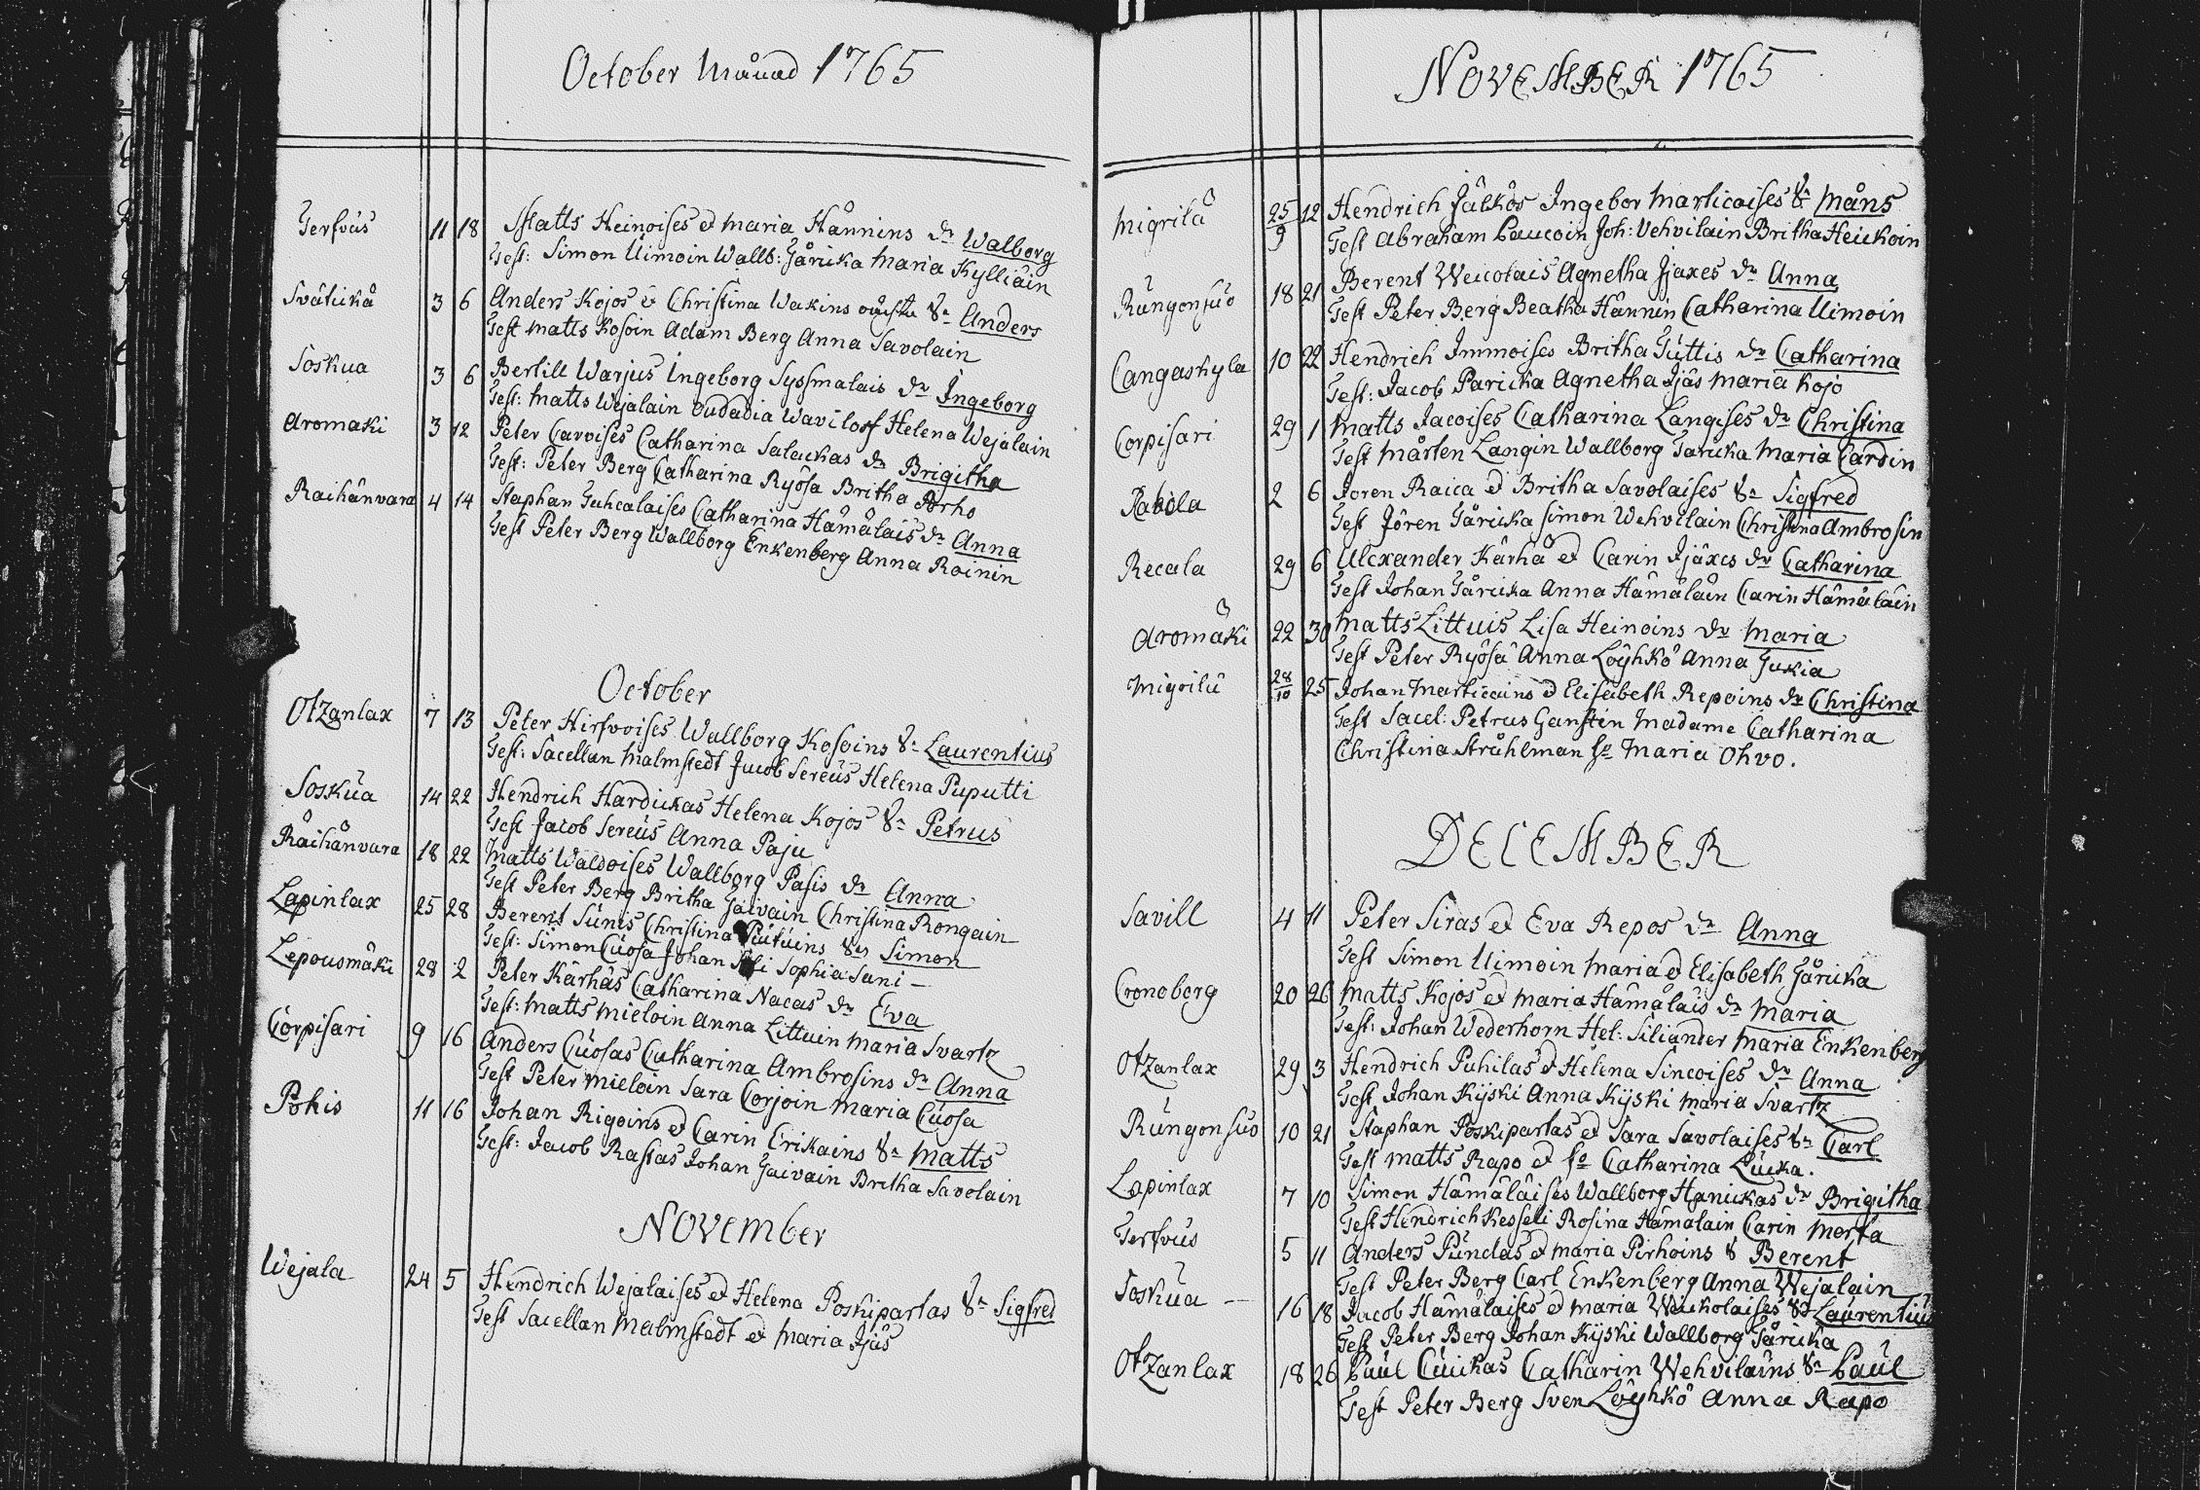 October Månad 1765
Jerfvis 11 18 Matts Heinoises et Maria Hännins dr Walborg
Test: Simon Uimoin Wallb: Järicka Maria Kylliäin
Svätickä 3 6 Anders Kojos et Christina Wakins Sn Anders
Test Matts Kosoin Adam Berg Anna Savolain
Soskua 3 6 Bertill Warjus Ingeborg Syssmalais dr Ingeborg
Test: Matts Wejalain Oudadia Wavilof Helena Wejalain
Aromaki 3 12 Peter Carvises Catharina Salackas dr Brigitha
Test: Peter Berg Catharina Ryösa Britha Porho
Raihänvara 4 14 Staphan Juhcalaises Catharina Hämäläis dr Anna
Test Peter Berg Wallborg Enkenberg Anna Roinin
October
Otzanlax 7 13 Peter Hirfvoises Wallborg Kosoins Sn Laurentius
Test: Sacellan Malmstedt Jacob Sereüs Helena Puputti
Soskua 14 22 Hendrich Hardickas Helena Kojos Sn Petrus
Test Jacob Sereüs Anna Paju
Räihänvara 18 22 Matts Waldoises Wallborg Pasis dr Anna
Test Peter Berg Britha Jäiväin Christina Rongain
Lapinlax 25 28 Berent Sünis Christina Sn Simon
Test: Simon Cuosa Johan Sophia Sani –
Lepousmäki 28 2 Peter Kärhäs Catharina Nacas dr Eva
Test: Matts Mieloin Anna Littuin Maria Svartz
Corpisari 9 16 Anders Cuosas Catharina Ambrosins dr Anna
Test Peter Mieloin Sara Corjoin Maria Cuosa
Pohis 11 16 Johan Rigoins et Carin Erikains Sn Matts
Test: Jacob Rastas Johan Jaivain Britha Savolain
November
Wejala 24 5 Hendrich Wejalaises et Helena Poskipartas Sn Sigfred
Test Sacellan Malmstedt et Maria Jjäs
NOVEMBER 1765
Migrilä 25/9 12 Hendrich Jälkös Ingebor Marticaises Sn Måns
Test Abraham Laucoin Joh: Vehvilain Britha Heickoin
Rüngonsuo 18 21 Berent Weicolais Agnetha Jjaxes dr Anna
Test Peter Berg Beatha Hännin Catharina Uimoin
Cangaskyla 10 22 Hendrich Immoises Britha Jüttis dr Catharina
Test: Jacob Paricka Agnetha Jjäs Maria Kojo
Corpisari 29 1 Matts Jacoises Catharina Langises dr Christina
Test Mårten Langin Wallborg Jaricka Maria Cardin
Rabola 2 6 Joren Raica et Britha Savolaises Sn Sigfred
Test Jören Järicka Simon Wehvilain Christina Ambrosin
Recala 29 6 Alexander Kärhä et Carin Jjäxes dr Catharina
Test Johan Järicka Anna Hämäläin Carin Hämäläin
Aromäki 22 30 Matts Littuis Lisa Heinoins dr Maria
Test Peter Ryösä Anna Löyhkö Anna Jukia
Migrilä 28/10 25 Johan Marticains et Elisabeth Repoins dr Christina
Test Sacel: Petrus Ganstén Madame Catharina
Christina Stråhlman Maria Ohvo.
DECEMBER
Savill 4 11 Peter Siras et Eva Repos dr Anna
Test Simon Uimoin Maria et Elisabeth Järicka
Cronoberg 20 26 Matts Kojos et Maria Hämäläis dr Maria
Test: Johan Wederhorn Hel: Siliander Maria Enkenberg
Otzanlax 29 3 Hendrich Puhilas et Helena Sincoises dr Anna
Test Johan Kijski Anna Kijski Maria Svartz
Rüngonsuo 10 21 Staphan Poskipartas et Sara Savolaises Sn Carl
Test Matts Rapo et Catharina Lücka.
Lapinlax 7 10 Simon Hämäläises Wallborg Hanickas dr Brigitha
Test Hendrich Kesseli Rosina Hämalain Carin Morta
Jerfvis 5 11 Anders Pündas et Maria Pirhoins S Berent
Test Peter Berg Carl Enkenberg Anna Wejalain
Soskua – 16 18 Jacob Hämäläises et Maria Weickolaises Sn Laurentius
Test Peter Berg Johan Kijski Wallborg Järicka
Otzanlax 18 26 Paul Cuickas Catharin Wehviläins Sn Paul
Test Peter Berg Sven Löyhkö Anna Rapo